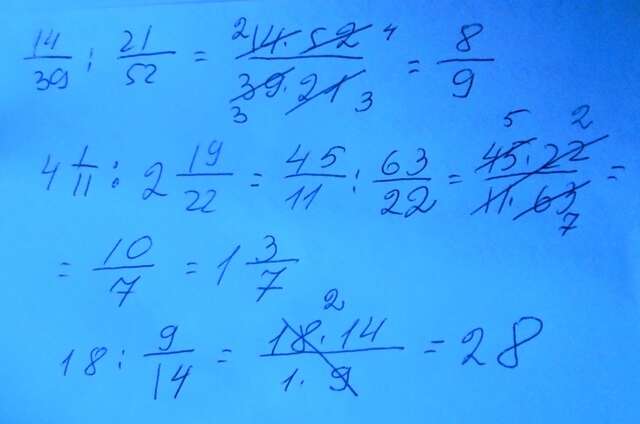 14/39 : 21/52 = 2 14·52 4 / 3 39·21 3 = 8/9
4 1/11 : 2 19/22 = 45/11 : 63/22 = 5 45·22 2 / 11·63 7 =
= 10/7 = 1 3/7
18 : 9/14 = 2 18·14 / 1·9 = 28